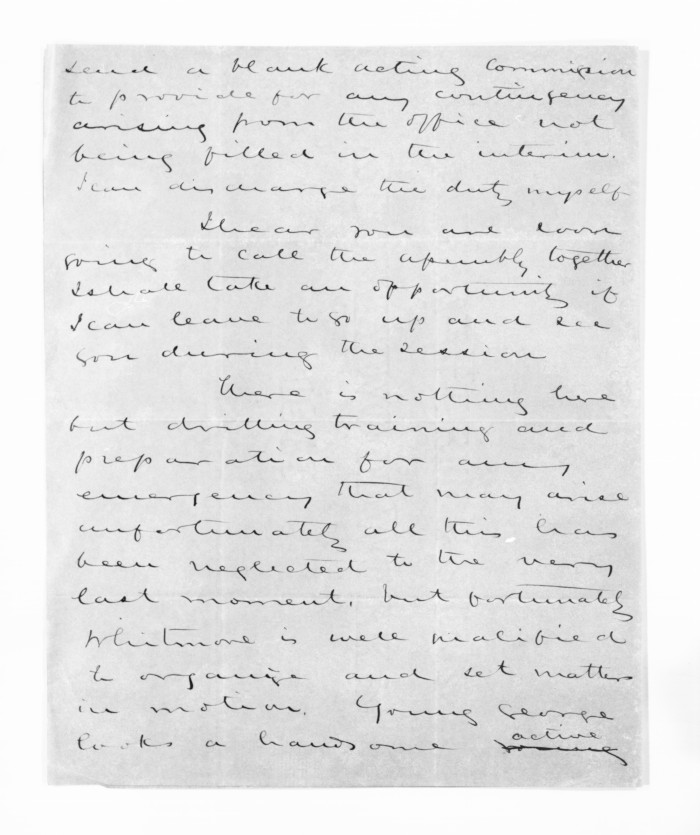 send a blank acting Commission
to provide for any contingency
arising from the office not
being filled in the interim.
I can discharge the duty myself
I hear you are soon
going to call the assembly together
I shall take an opportunity if
I can leave to go up and see
you during the session
There is nothing here
but drilling training and
preparation for any
emergency that may arise
unfortunately all this has
been neglected to the very
last moment, but fortunately
Whitmore is well qualified
to organize and set matters
in motion. Young George
looks a handsome active